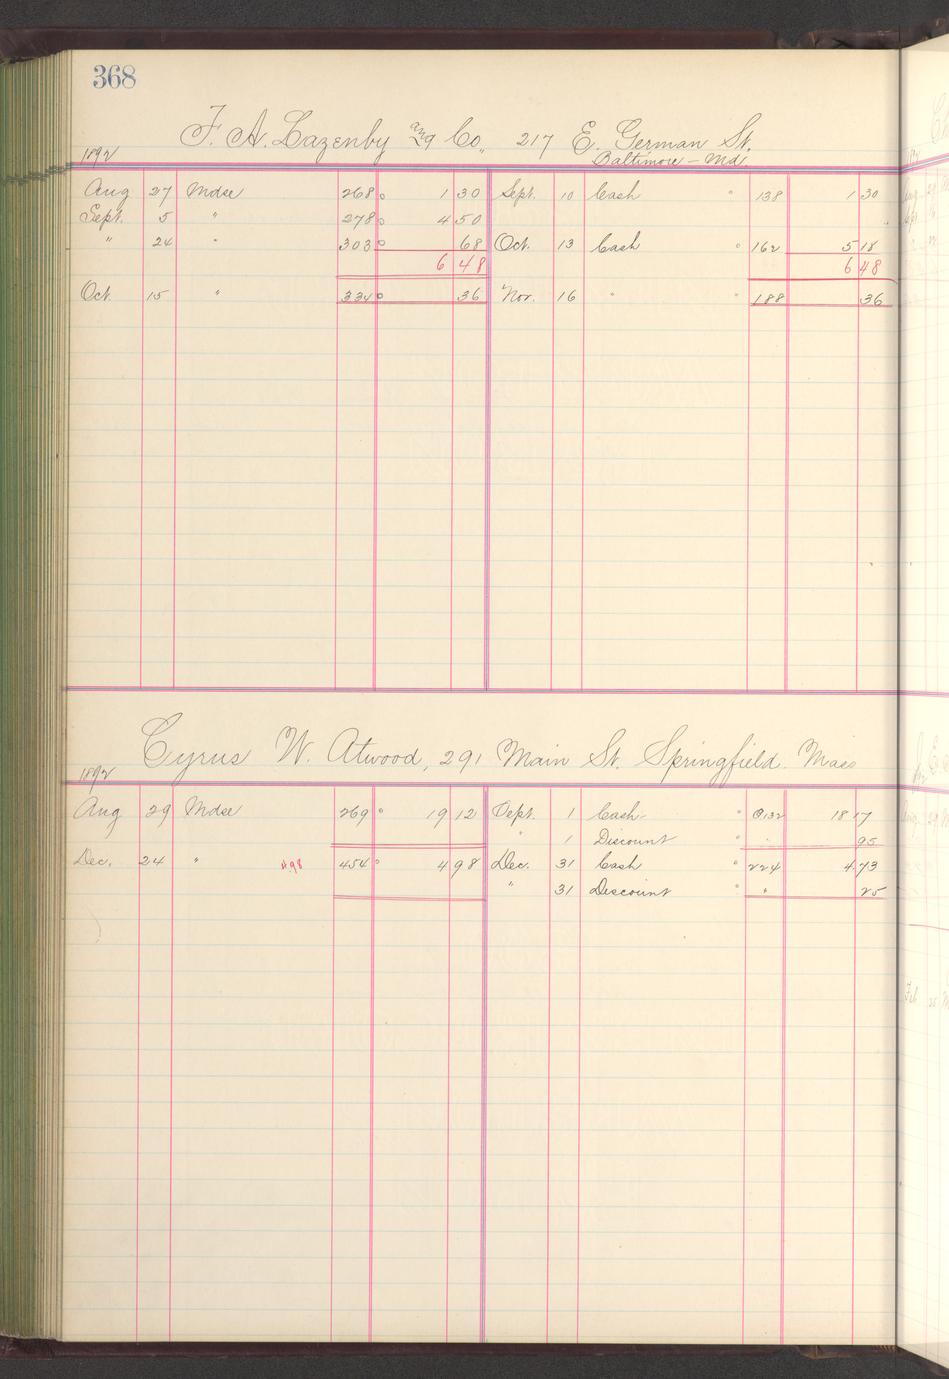 368
F. A. Lazenby and Co., 217 E. German St.
Baltimore - Md.
1892
Aug 27 Mdse 268 1 30 Sept. 10 Cash " 138 1 30
Sept. 5 " 278 4 50
" 24 " 303 68 Oct. 13 Cash " 162 5 18
6 48 6 48
Oct. 15 " 334 36 Nov. 16 " " 188 36
Cyrus W. Atwood, 291 Main St. Springfield. Mass
1892
Aug 29 Mdse 269 " 19 12 Sept. 1 Cash - " 132 18 17
" 1 Discount " 95
Dec. 24 " 4.98 454 " 4 98 Dec. 31 Cash " 224 4.73
" 31 Discount " " 25